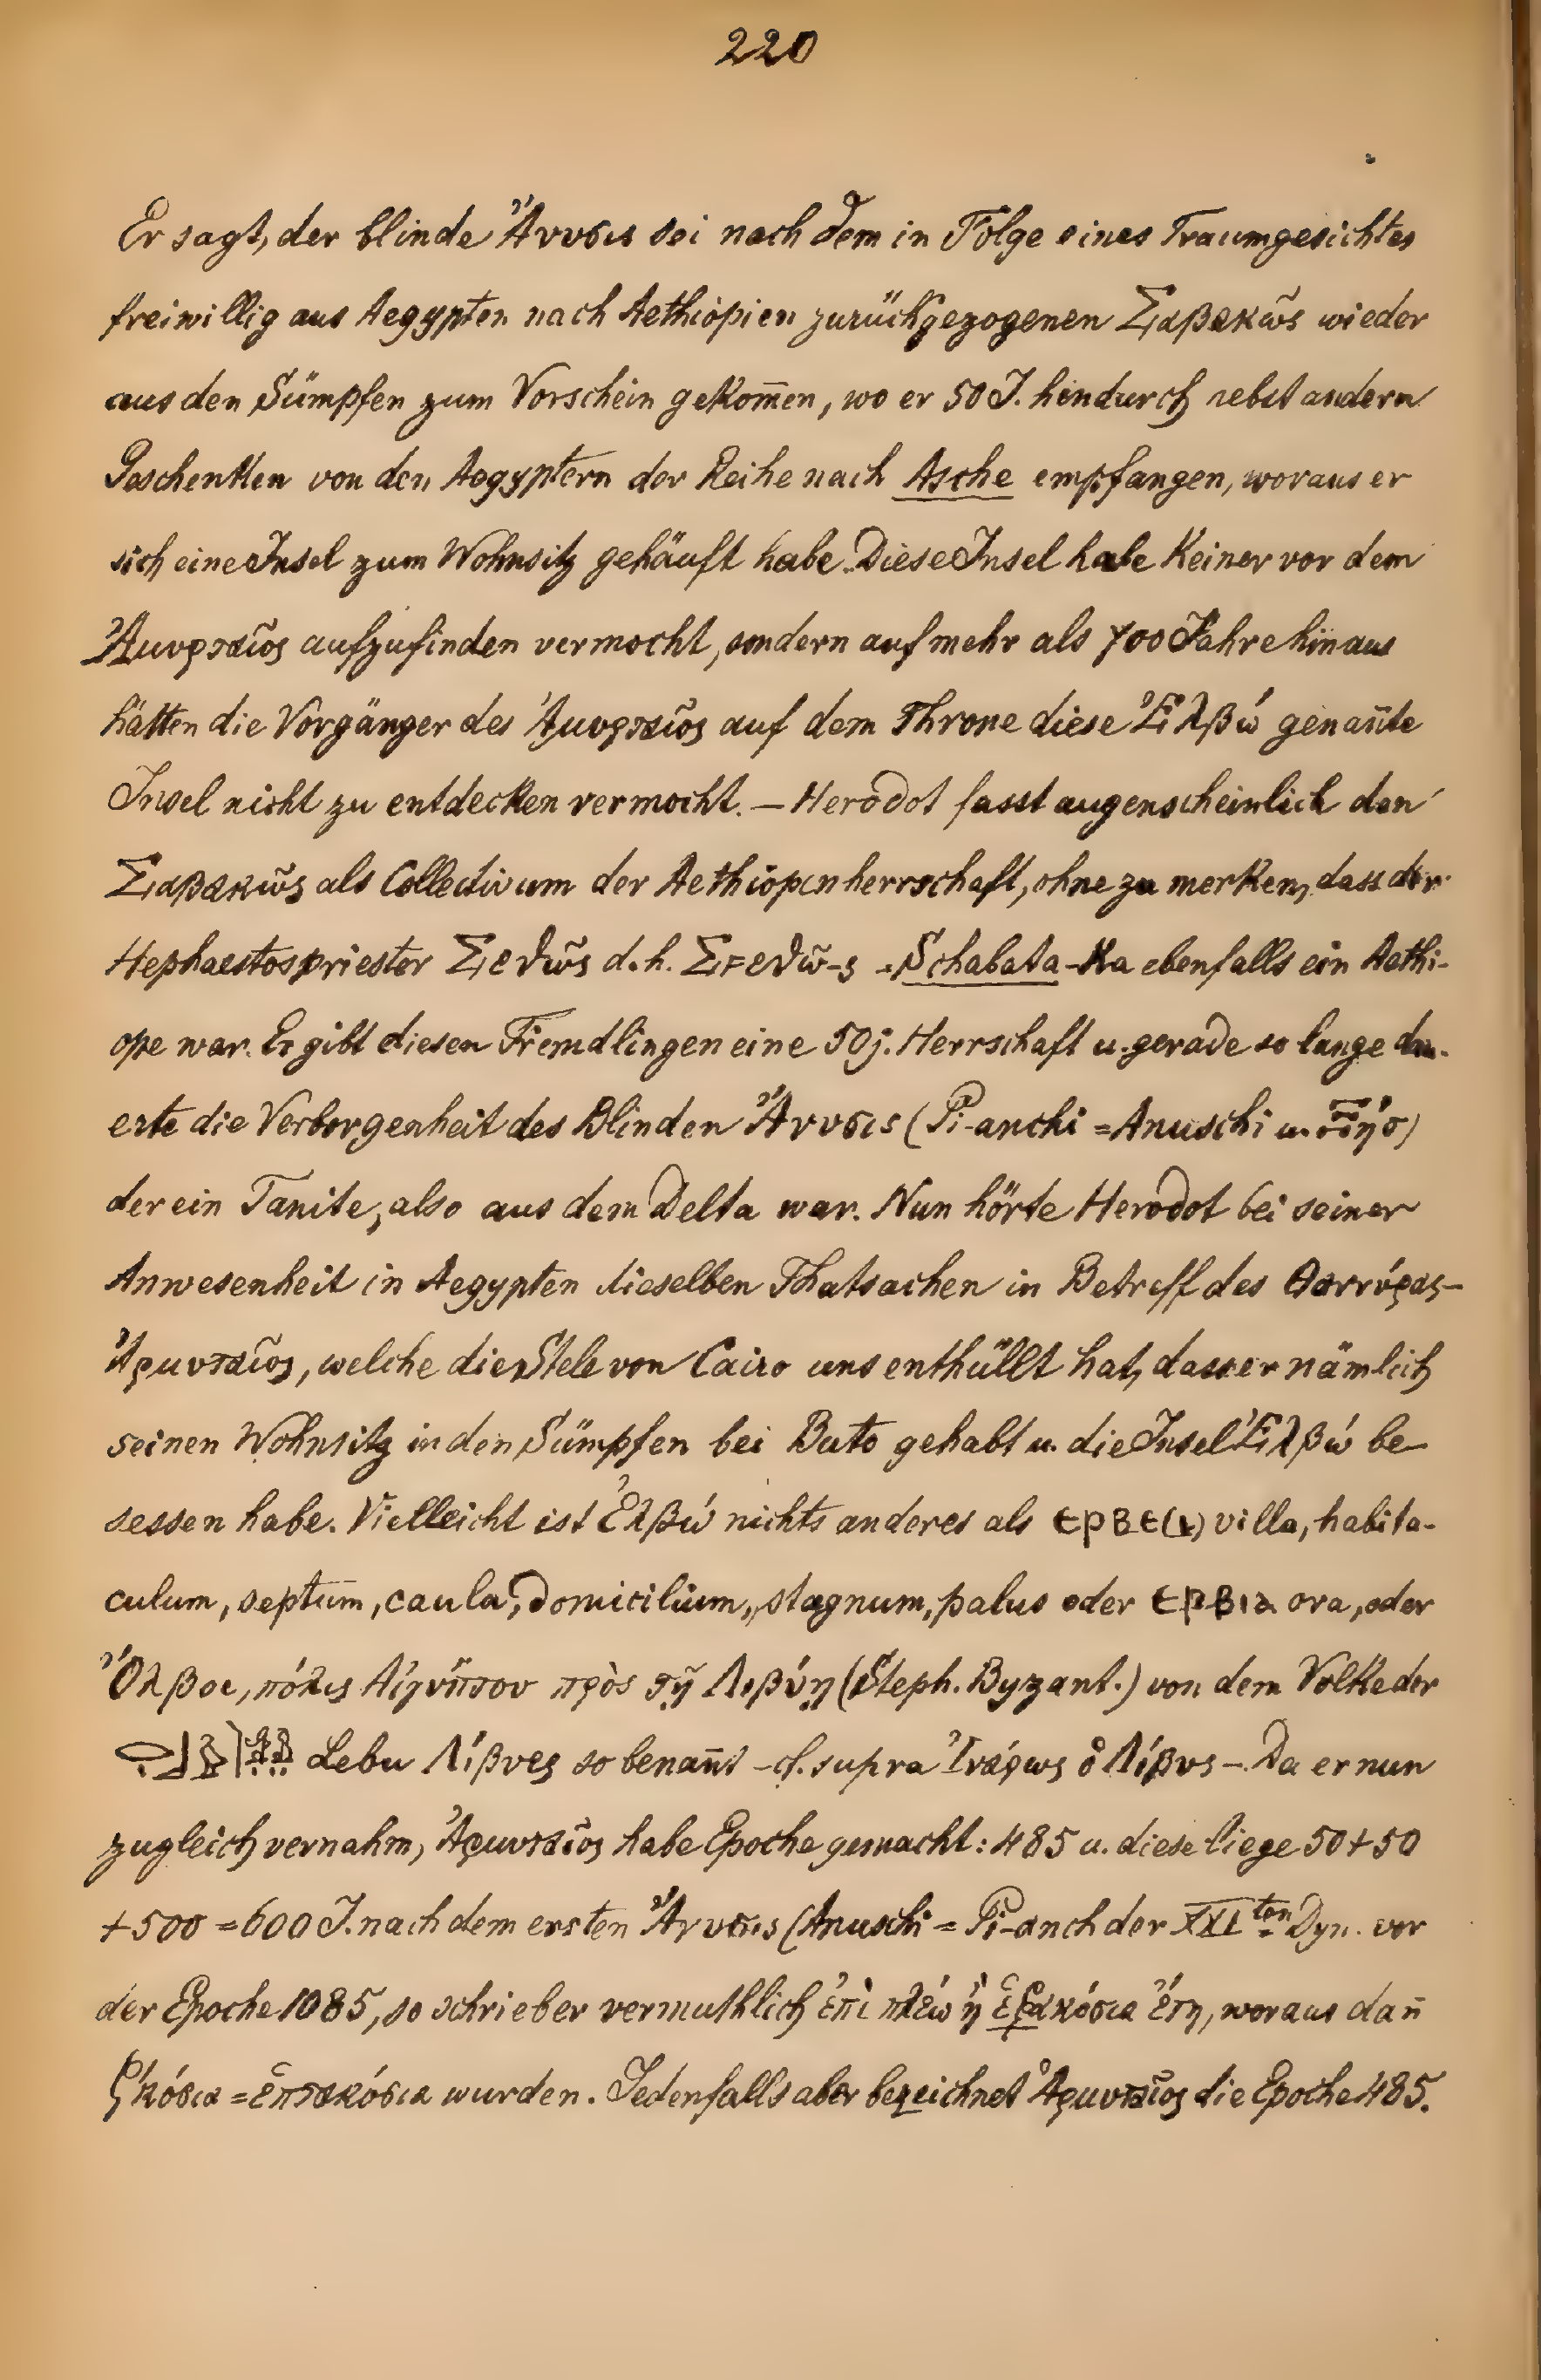 220
Er sagt, der blinde Ἄνυσις sei nach dem in Folge eines Traumgesichtes
freiwillig aus Aegypten nach Aethiopien zurückgezogenen Σαβακῶς wieder
aus den Sümpfen zum Vorschein gekom̅en, wo er 50 J. hindurch nebst andern
Geschenken von den Aegyptern der Reihe nach Asche empfangen, woraus er
sich eine Insel zum Wohnsitz gehäuft habe. Diese Insel habe Keiner vor dem
Ἀμυρταῖος aufzufinden vermocht, sondern auf mehr als 700 Jahre hinaus
hätten die Vorgänger des Ἀμυρταῖος auf dem Throne diese Ἐλβώ genan̅te
Insel nicht zu entdecken vermocht. — Herodot fasst augenscheinlich den
Σαβακῶς als Collectivum der Aethiopenherrschaft, ohne zu merken, dass der
Hephaestospriester Σεθῶς d. h. ΣϜεθῶ-ς - Schabata-Ka ebenfalls ein Aethi-
ope war. Er gibt diesen Fremdlingen eine 50j. Herrschaft u. gerade so lange dau-
erte die Verborgenheit des Blinden Ἄνυσις (Pi-anchi = Anuschi u.
der ein Tanite, also aus dem Delta war. Nun hörte Herodot bei seiner
Anwesenheit in Aegypten dieselben Thatsachen in Betreff des Θαννύρας-
Ἀμυρταῖος, welche die Stele von Cairo uns enthüllt hat, dass er nämlich
seinen Wohnsitz in den Sümpfen bei Buto gehabt u. die Insel Ἐλβώ be-
sessen habe. Vielleicht ist Ἐλβώ nichts anderes als ⲉⲣⲃⲉ(ⲓ) villa, habita-
culum, septum, caula, domicilium, stagnum, palus oder ⲉⲣⲃⲓⲁ ora, oder
Ὄλβοι, πόλις Αἰγύπτου πρὸς τῇ Λιβύῃ (Steph. Byzant.) von dem Volke der
Lebu Λίβυες so benan̅t - cf. supra Ἰνάρως ὁ Λίβυς -. Da er nun
zugleich vernahm, Ἀμυρταῖος habe Epoche gemacht: 485 u. diese liege 50+50
+500 = 600 J. nach dem ersten Ἄνυσις (Anuschi = Pi-anch der XXIten Dyn. vor
der Epoche 1085, so schrieb er vermuthlich ἐπὶ πλέω ἢ ἑξακόσια ἔτη, woraus dan̅
ζ'κόσια = ἑπτακόσια wurden. Jedenfalls aber bezeichnet Ἀμυρταῖος die Epoche 485.